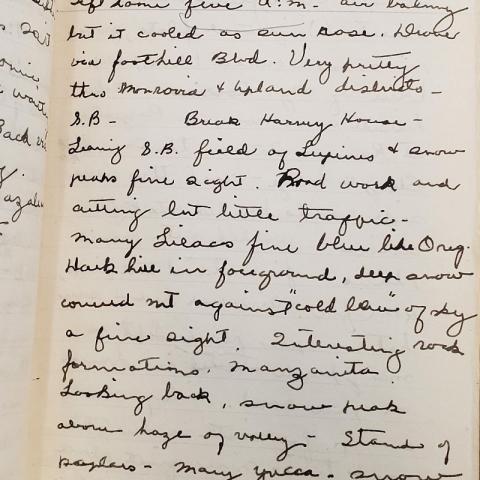 left home five a.m. - air balmy
but it cooled as sun rose. Drove
via foothill Blvd. Very pretty
thru Monrovia & Upland districts -
S.B - Break Harvey House -
Leaving S.B. field of Lupines & snow
peaks fine sight. Road work and
but little traffic -
many Lilacs fine blue like Oreg.
hill in foreground, deep snow
covered mt against "cold blue" of sky
a fine sight. Interesting rock
formations. Manzanita.
Looking back, snow peak
above haze of valley - Stands of
poplars - many yucca - snow